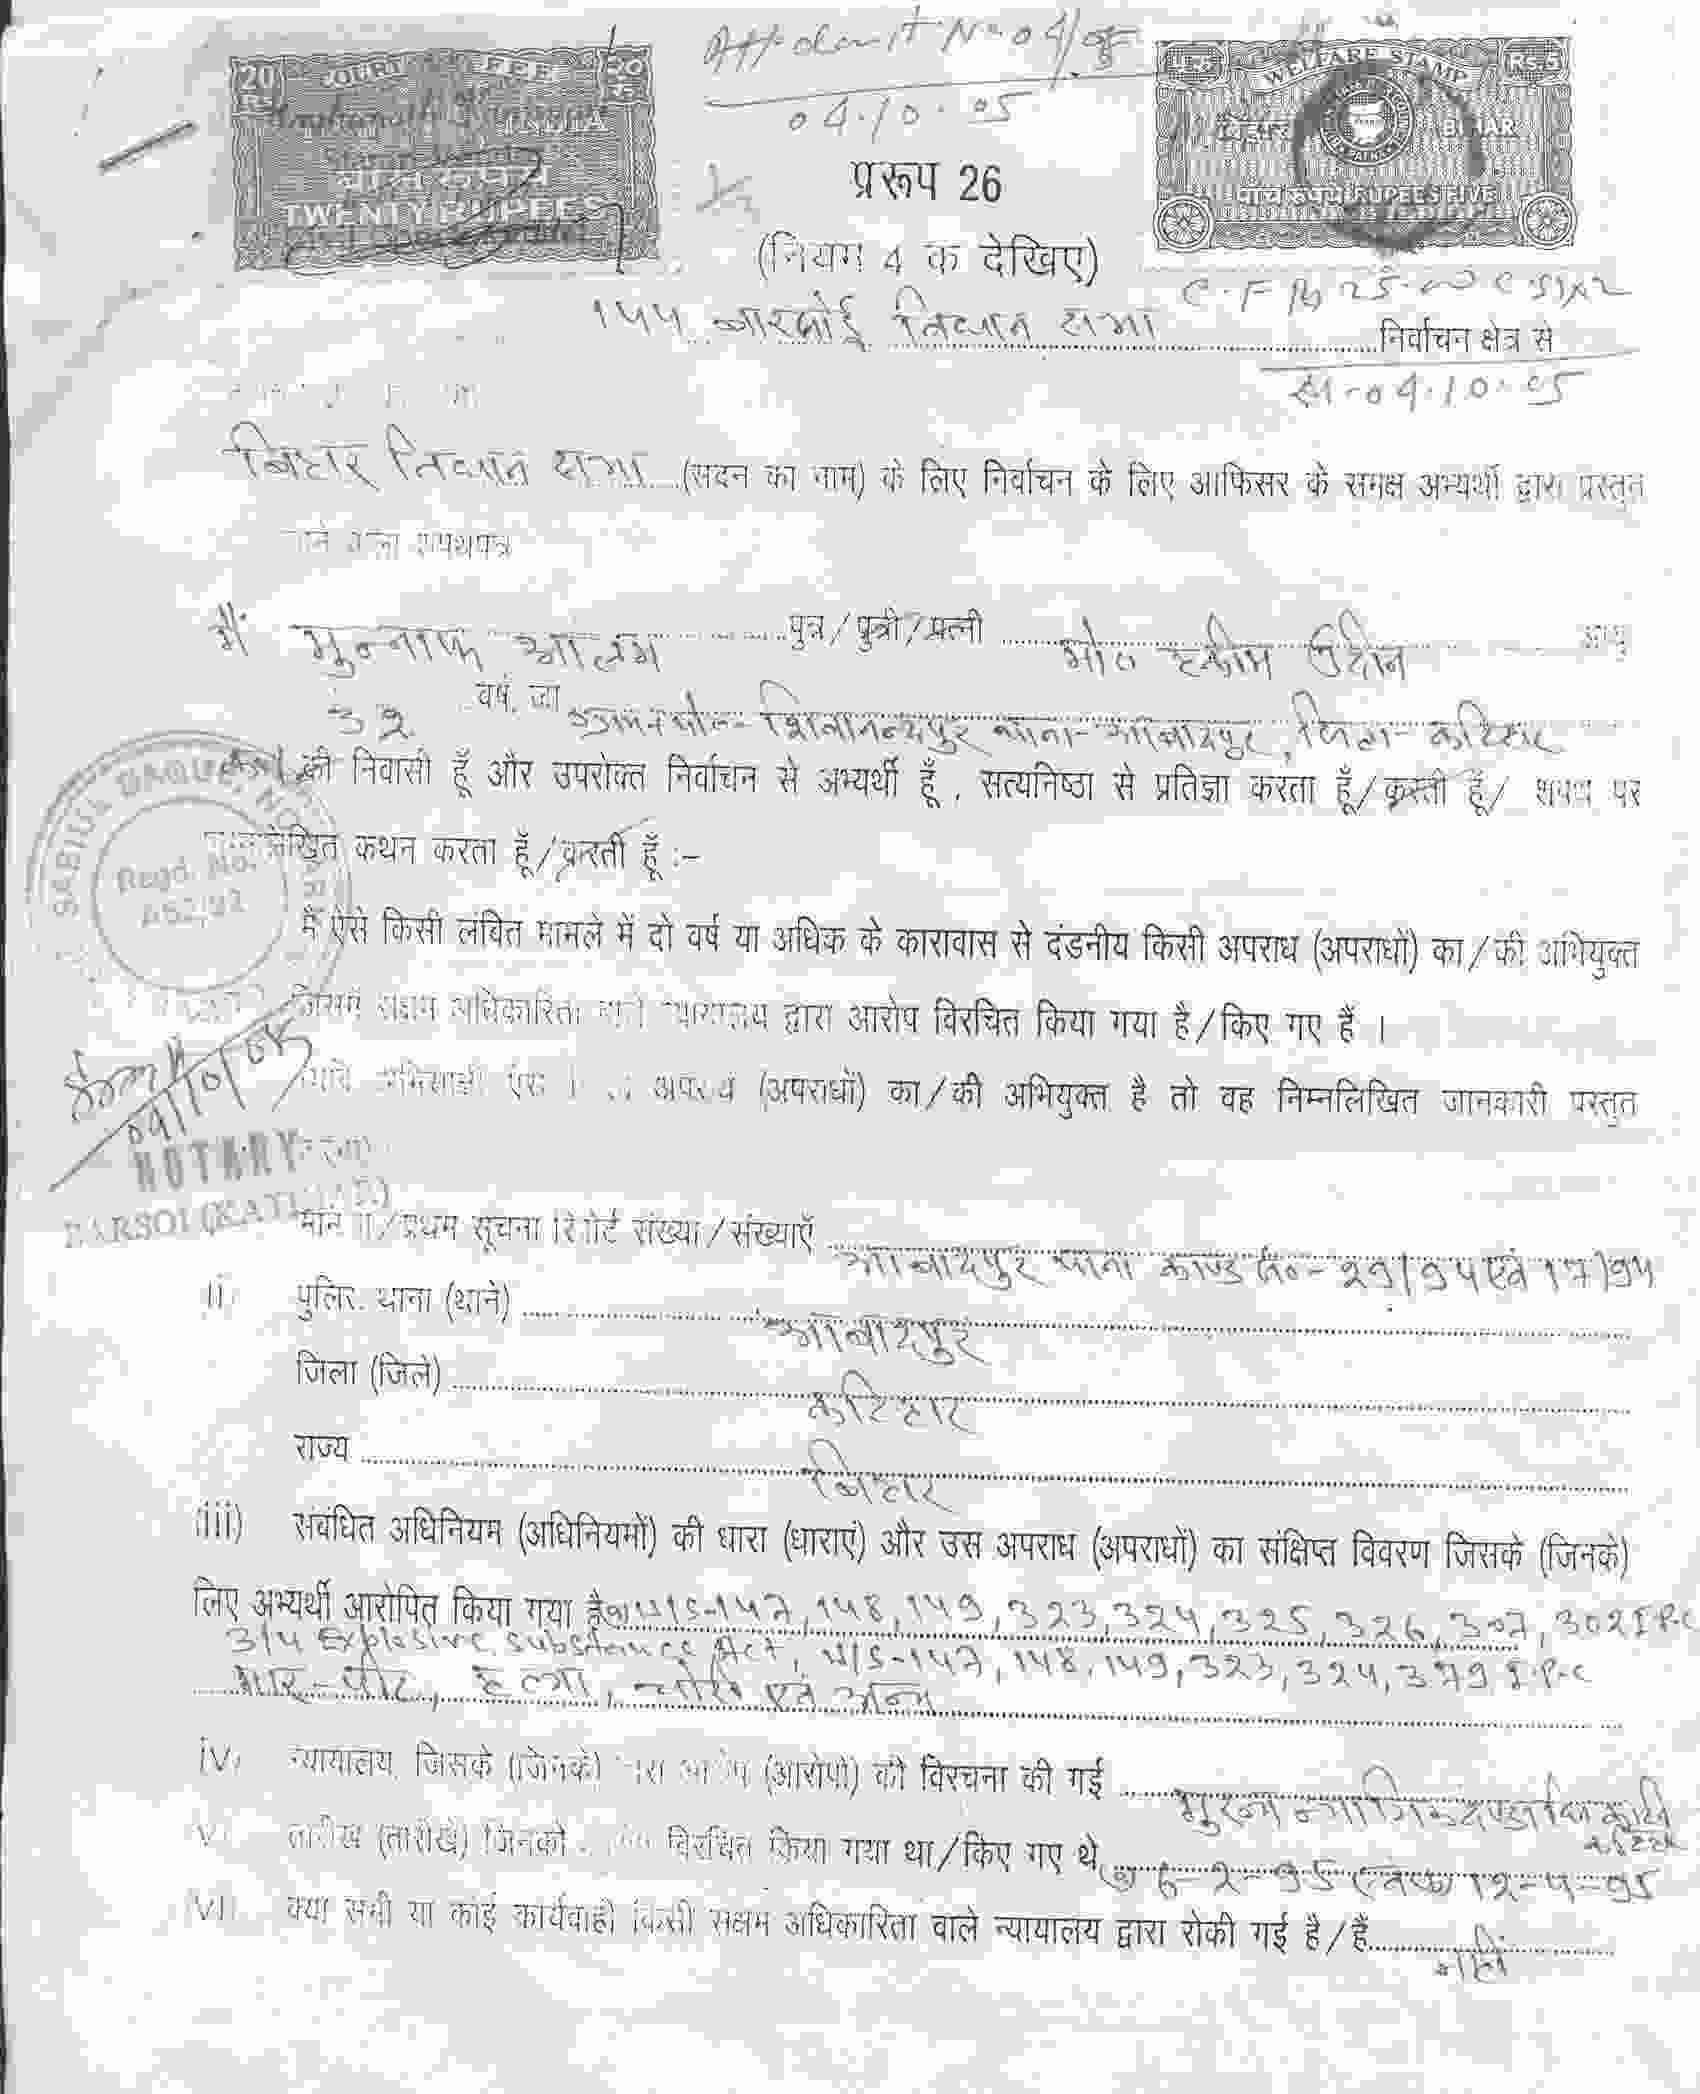 Affidavit No 04/05
04.10.05
20 Rs. COURT FEE २० रु.
INDIA
बीस रुपये
TWENTY RUPEES
पांच रु. WELFARE STAMP Rs.5
बिहार BIHAR
पांच रुपये RUPEES FIVE
प्ररूप 26
(नियम 4 क देखिए)
C.F. Rs 25.00
१५५ बारसोई विधान सभा ........निर्वाचन क्षेत्र से
04.10.05
बिहार विधान सभा.....(सदन का नाम) के लिए निर्वाचन के लिए आफिसर के समक्ष अभ्यर्थी द्वारा प्रस्तुत
वाला शपथपत्र
मैं मुन्नाफ आलम ..........पुत्र/पुत्री/पत्नी ........ मो० हकीम उद्दीन ........ आयु
32 वर्ष, जो शिवानन्दपुर थाना-आबादपुर, जिला-कटिहार
की निवासी हूँ और उपरोक्त निर्वाचन से अभ्यर्थी हूँ, सत्यनिष्ठा से प्रतिज्ञा करता हूँ/करती हूँ/ शपथ पर
कथन करता हूँ/करती हूँ :-
SABIUL
Regd. No.
मैं ऐसे किसी लंबित मामले में दो वर्ष या अधिक के कारावास से दंडनीय किसी अपराध (अपराधों) का/की अभियुक्त
जिसमें सक्षम अधिकारिता न्यायालय द्वारा आरोप विरचित किया गया है/किए गए हैं ।
04/10/05
अपराध (अपराधों) का/की अभियुक्त है तो वह निम्नलिखित जानकारी प्रस्तुत
NOTARY
BARSOI (KATIHAR)
/प्रथम सूचना रिपोर्ट संख्या/संख्याएँ ........ आबादपुर थाना काण्ड सं०-29/94 एवं 17/94
ii) पुलिस थाना (थाने) ........ आबादपुर
जिला (जिले) ........ कटिहार
राज्य ........ बिहार
iii) संबंधित अधिनियम (अधिनियमों) की धारा (धाराएं) और उस अपराध (अपराधों) का संक्षिप्त विवरण जिसके (जिनके)
लिए अभ्यर्थी आरोपित किया गया है U/S-147, 148, 149, 323, 324, 325, 326, 307, 302 I.P.C
3/4 Explosive substance Act, U/S-147, 148, 149, 323, 324, 379 I.P.C
मार-पीट, हत्या, चोरी एवं अन्य
iv) न्यायालय जिसके (जिनके) द्वारा आरोप (आरोपों) की विरचना की गई ........ मुख्य न्यायिक दण्डाधिकारी
कटिहार
v) तारीख (तारीखें) जिनको विरचित किया गया था/किए गए थे 6-2-95 एवं 12-4-95
vi) क्या सभी या कोई कार्यवाही किसी सक्षम अधिकारिता वाले न्यायालय द्वारा रोकी गई है/हैं........ नहीं